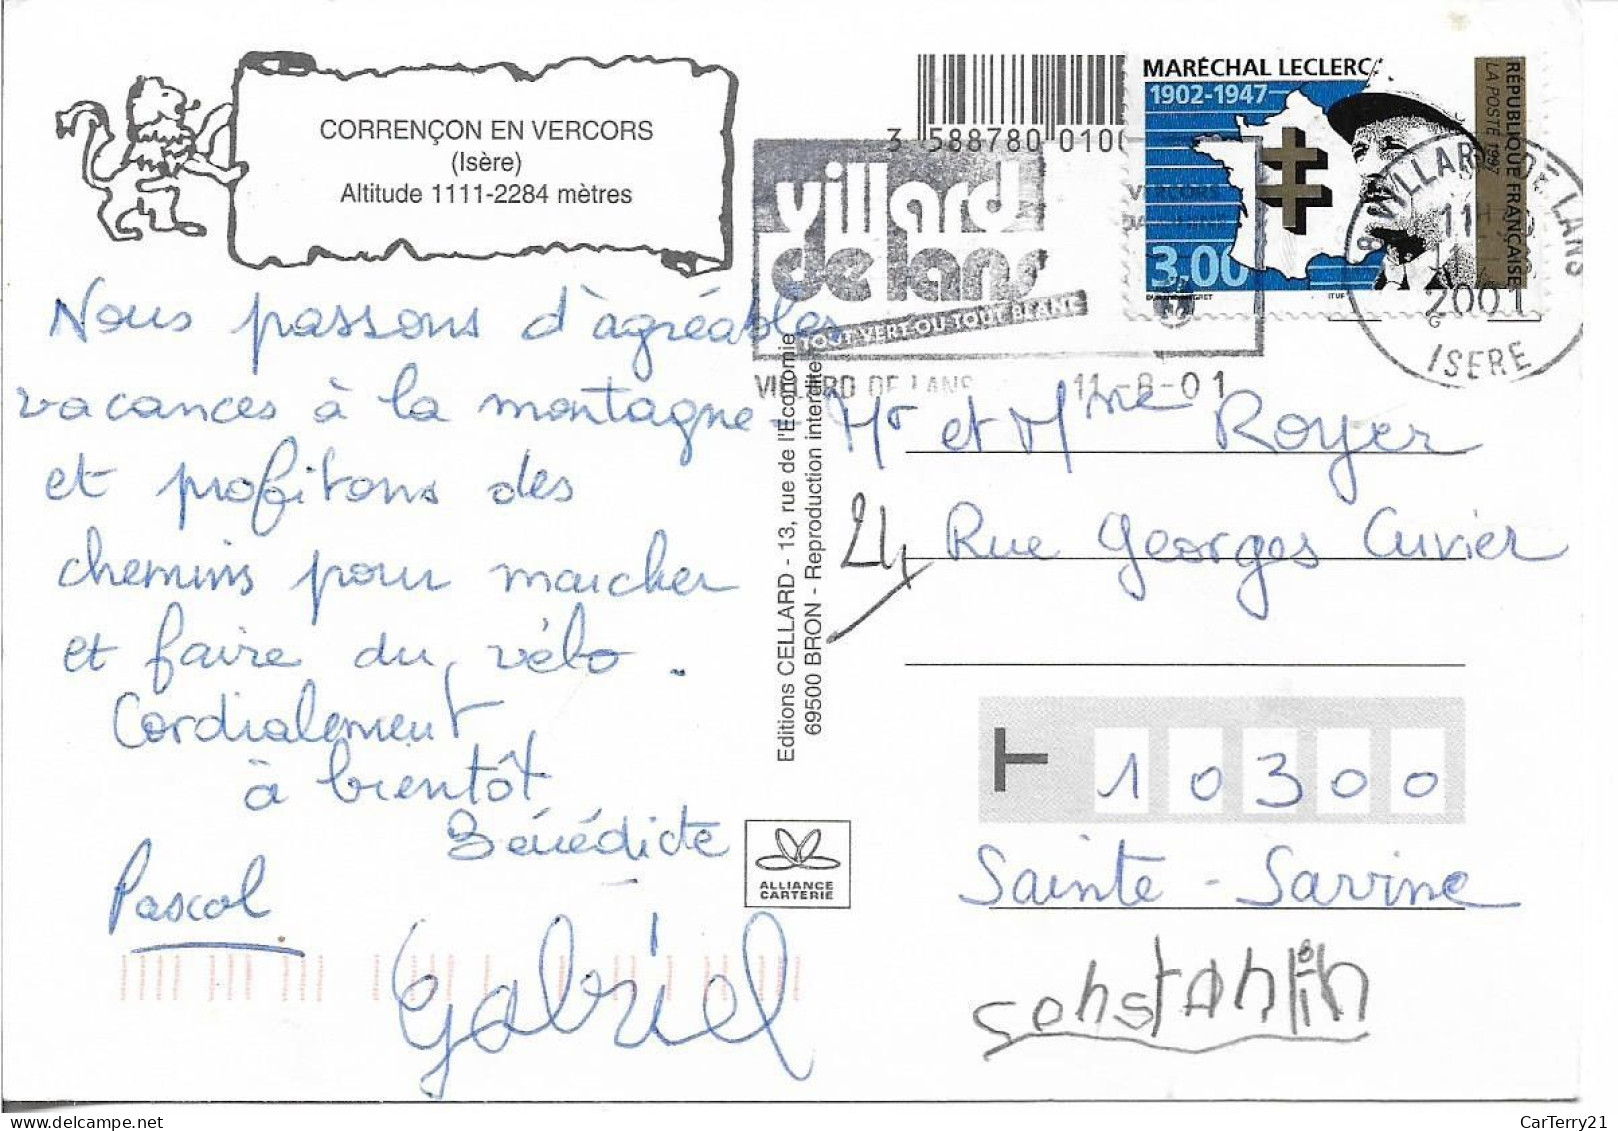 CORRENÇON EN VERCORS
(Isère)
Altitude 1111-2284 mètres
Nous passons d'agréables
vacances à la montagne
et profitons des
chemins pour marcher
et faire du vélo.
Cordialement
à bientôt
Bénédicte
Pascal
Gabriel
Editions CELLARD - 13, rue de l'Economie
69500 BRON - Reproduction interdite
ALLIANCE
CARTERIE
3 588780 0100
villard
de lans
TOUT VERT OU TOUT BLANC
VILLARD DE LANS 11-8-01
MARÉCHAL LECLERC
1902-1947
3,00
RÉPUBLIQUE FRANÇAISE
LA POSTE 1997
ITVF
VILLARD DE LANS
2001
ISERE
Mr et Mme Royer
24 Rue Georges Cuvier
T 10300
Sainte-Savine
constantin
CarTerry21